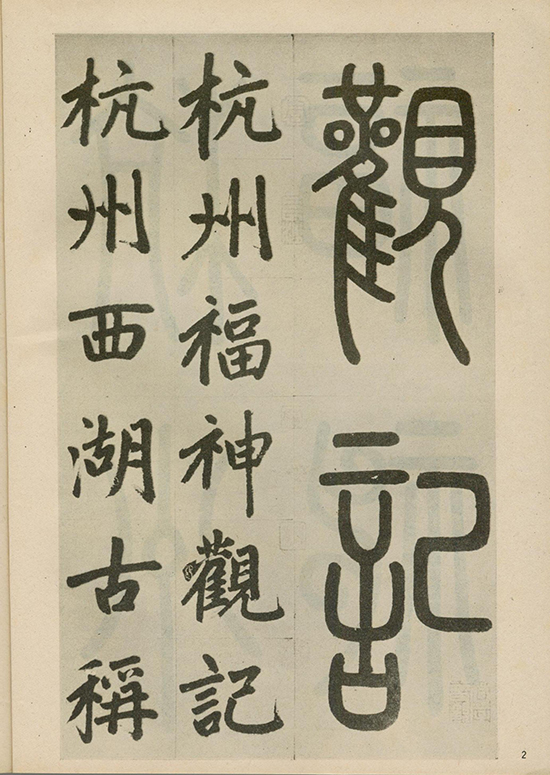 觀記
杭州福神觀記
杭州西湖古稱
2